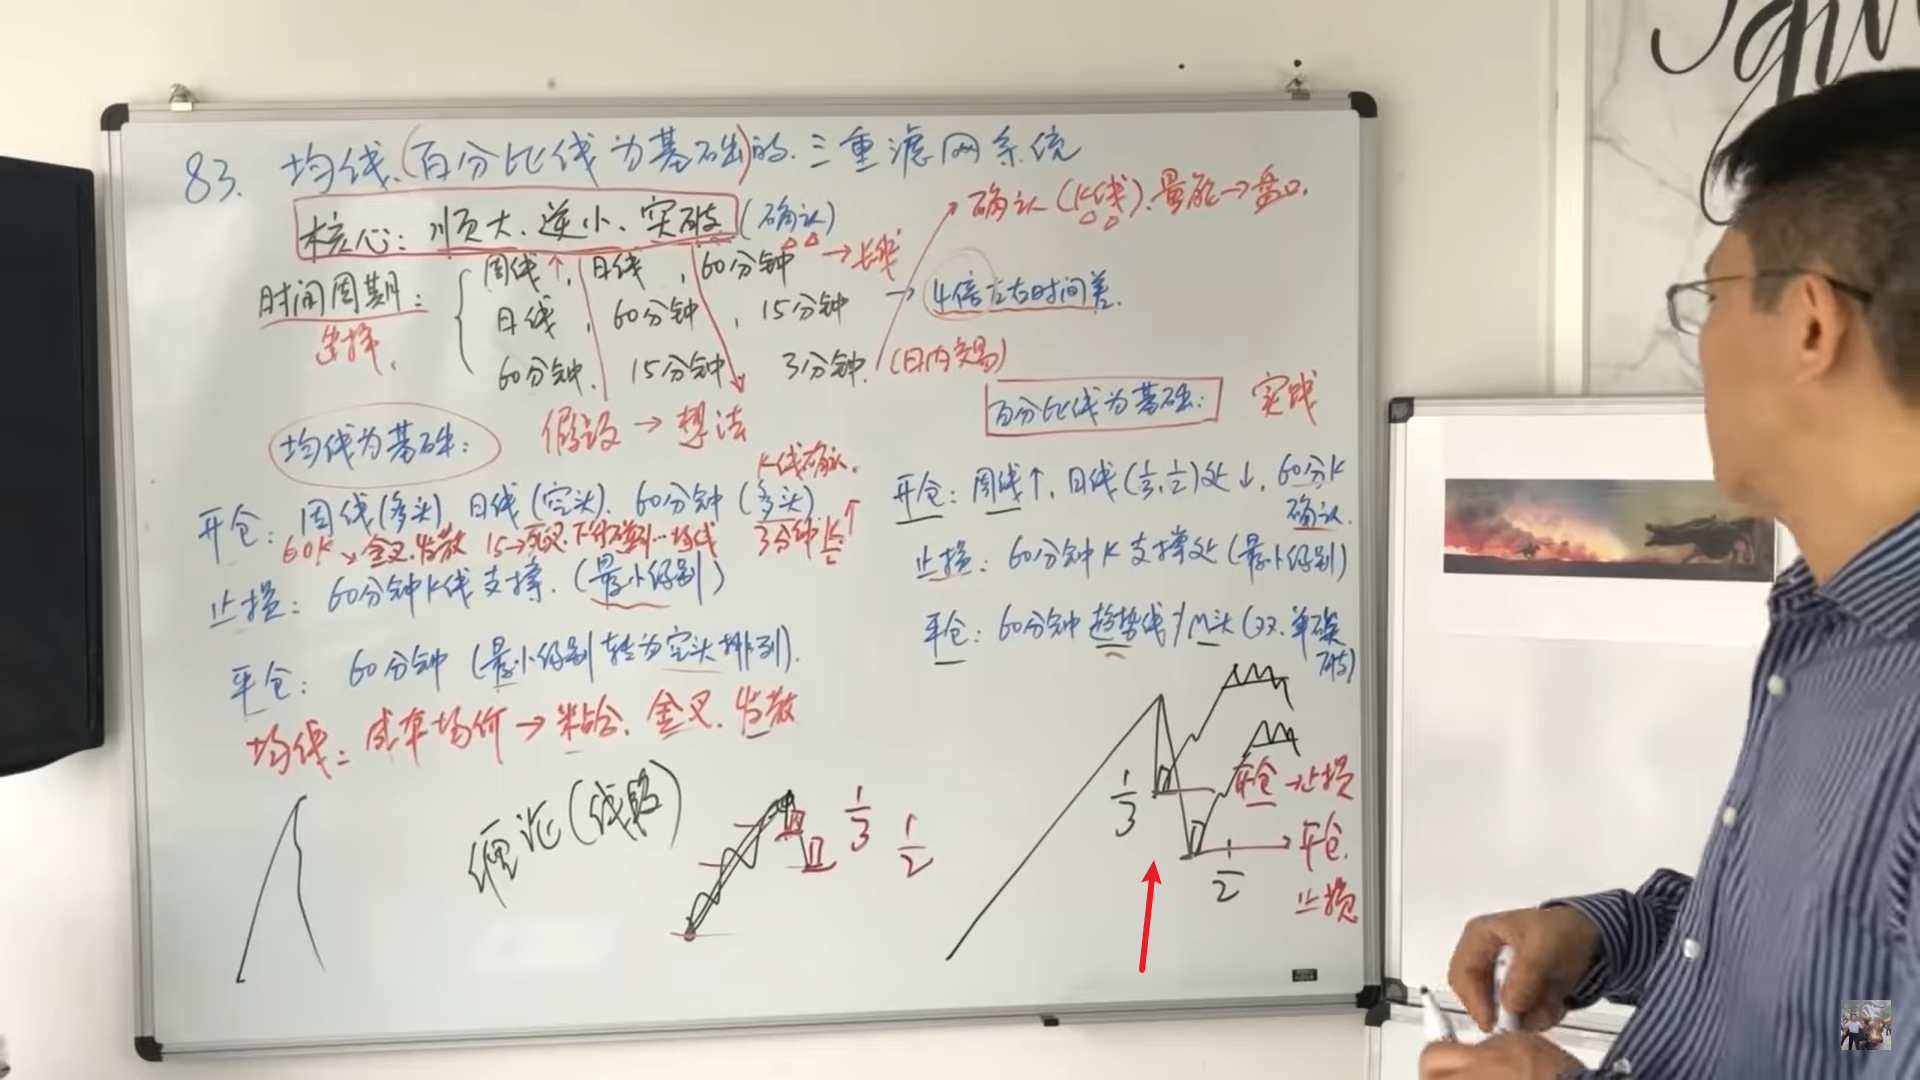 83. 均线(百分比线为基础)的三重滤网系统
核心：顺大、逆小、突破 (确认)
确认(K线).量能→盘口.
时间周期：
选择.
周线↑, 日线, 60分钟 →长线
日线, 60分钟, 15分钟 → 4倍左右时间差.
60分钟. 15分钟 3分钟. (日内交易)
均线为基础：
假设→想法
K线确认.
百分比线为基础： 实践
开仓：周线(多头) 日线(空头). 60分钟(多头)
60K→金叉.发散 15→死叉.下行 均线 3分钟K↑
止损：60分钟K线支撑.(最小级别)
平仓：60分钟(最小级别转为空头排列).
均线：成本均价→粘合. 金叉. 发散
开仓：周线↑, 日线(1/3, 1/2)处↓, 60分K
确认.
止损：60分钟K支撑处(最小级别)
平仓：60分钟趋势线/M头
缠论(线段)
1/3
1/2
1/3
开仓→止损
1/2
开仓.
止损